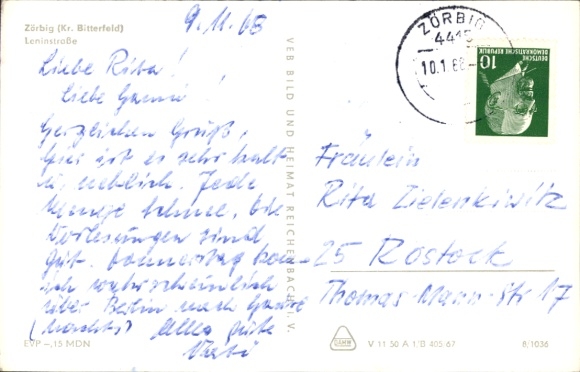 Zörbig (Kr. Bitterfeld)
Leninstraße
Liebe Rita!
Liebe
Herzlichen Grüße,
hier ist es sehr kalt
u. neblich. Jede
Menge Schnee, die
Vorlesungen sind
gut. Donnerstag kom-
ich wahrscheinlich
über Berlin nach
(nachts) Alles gute
VEB BILD UND HEIMAT REICHENBACH I. V.
ZÖRBIG
4415
10.1.68-
DEUTSCHE
DEMOKRATISCHE REPUBLIK
10
Fräulein
Rita Zielenkiwitz
25 Rostock
Thomas-Mann-Str 17
EVP -,15 MDN
V 11 50 A 1/B 405/67
6/1036